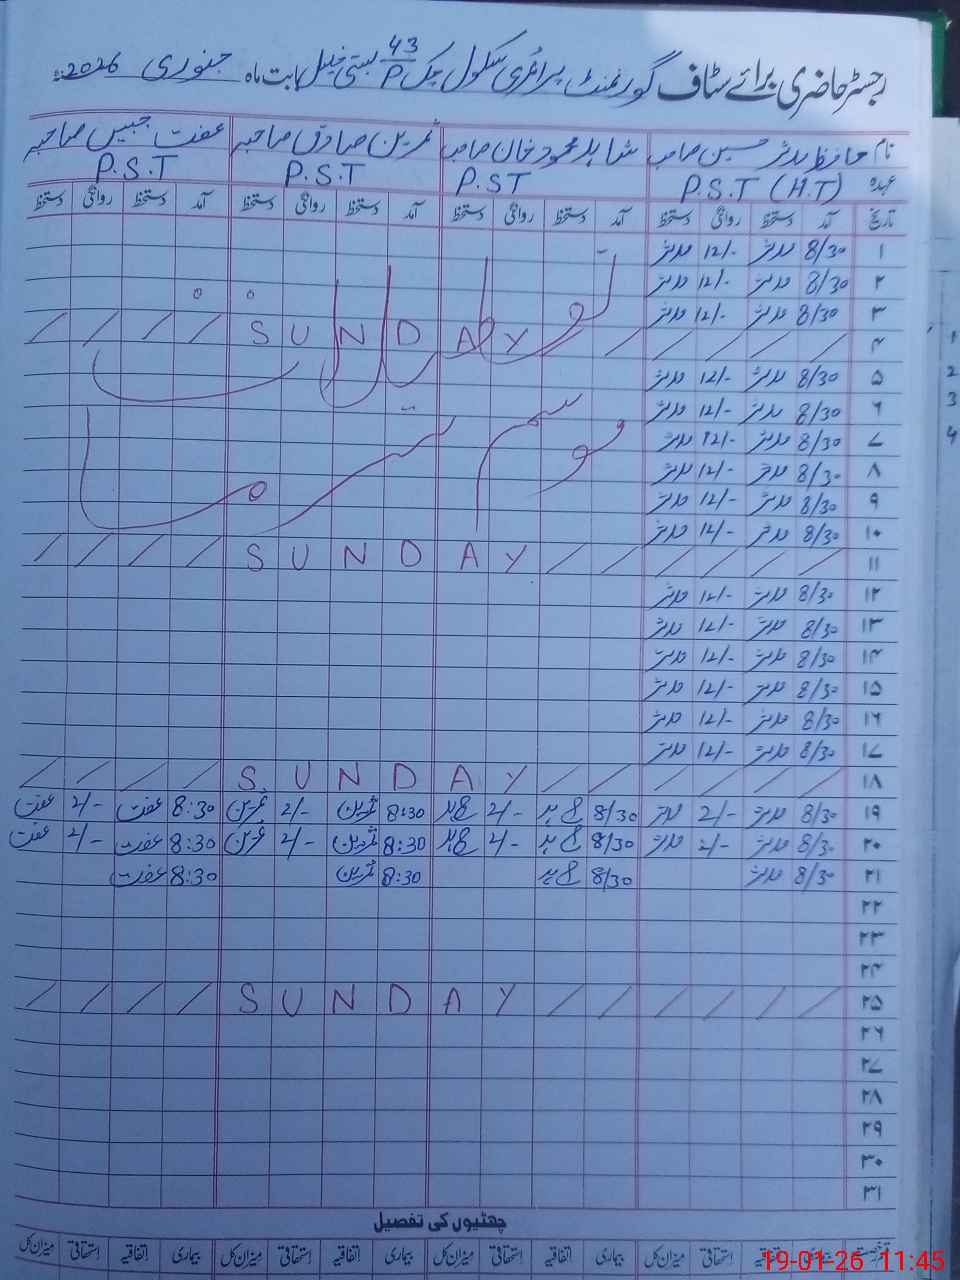 رجسٹر حاضری برائے سٹاف گورنمنٹ پرائمری سکول چک 43/P بستی خلیل بابت ماہ جنوری 2026ء
نام حافظ مدثر حسین صاحب شاہد محمود خان صاحب ثمرین صادق صاحبہ عفت جبیں صاحبہ
عہدہ P.S.T (H.T) P.ST P.S.T P.S.T
تاریخ آمد دستخط روانگی دستخط آمد دستخط روانگی دستخط آمد دستخط روانگی دستخط آمد دستخط روانگی دستخط
۱ 8/30 مدثر 12/- مدثر
۲ 8/30 مدثر 12/- مدثر
۳ 8/30 مدثر 12/- مدثر
۴ S U N D A Y
۵ 8/30 مدثر 12/- مدثر
۶ 8/30 مدثر 12/- مدثر
۷ 8/30 مدثر 12/- مدثر
۸ 8/30 مدثر 12/- مدثر
۹ 8/30 مدثر 12/- مدثر
۱۰ 8/30 مدثر 12/- مدثر
۱۱ S U N D A Y
۱۲ 8/30 مدثر 12/- مدثر
۱۳ 8/30 مدثر 12/- مدثر
۱۴ 8/30 مدثر 12/- مدثر
۱۵ 8/30 مدثر 12/- مدثر
۱۶ 8/30 مدثر 12/- مدثر
۱۷ 8/30 مدثر 12/- مدثر
۱۸ S U N D A Y
۱۹ 8/30 مدثر 2/- مدثر 8/30 2/- 8:30 ثمرین 2/- ثمرین 8:30 عفت 2/- عفت
۲۰ 8/30 مدثر 2/- مدثر 8/30 2/- 8:30 ثمرین 2/- ثمرین 8:30 عفت 2/- عفت
۲۱ 8/30 مدثر 8/30 8:30 ثمرین 8:30 عفت
۲۲
۲۳
۲۴
۲۵ S U N D A Y
۲۶
۲۷
۲۸
۲۹
۳۰
۳۱
تعطیلات موسم سرما
چھٹیوں کی تفصیل
بیماری اتفاقیہ استحقاقی میزان کل بیماری اتفاقیہ استحقاقی میزان کل بیماری اتفاقیہ استحقاقی میزان کل
19-01-26 11:45